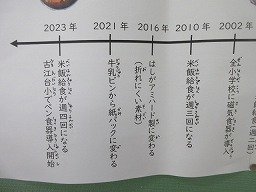 2023年
2021年
2016年
2010年
2002年
米飯給食が週四回になる
古江台小でペン食器導入開始
牛乳ビンから紙パックに変わる
はしがアミハード製に変わる
(折れにくい素材)
米飯給食が週三回になる
全小学校に磁気食器が導入